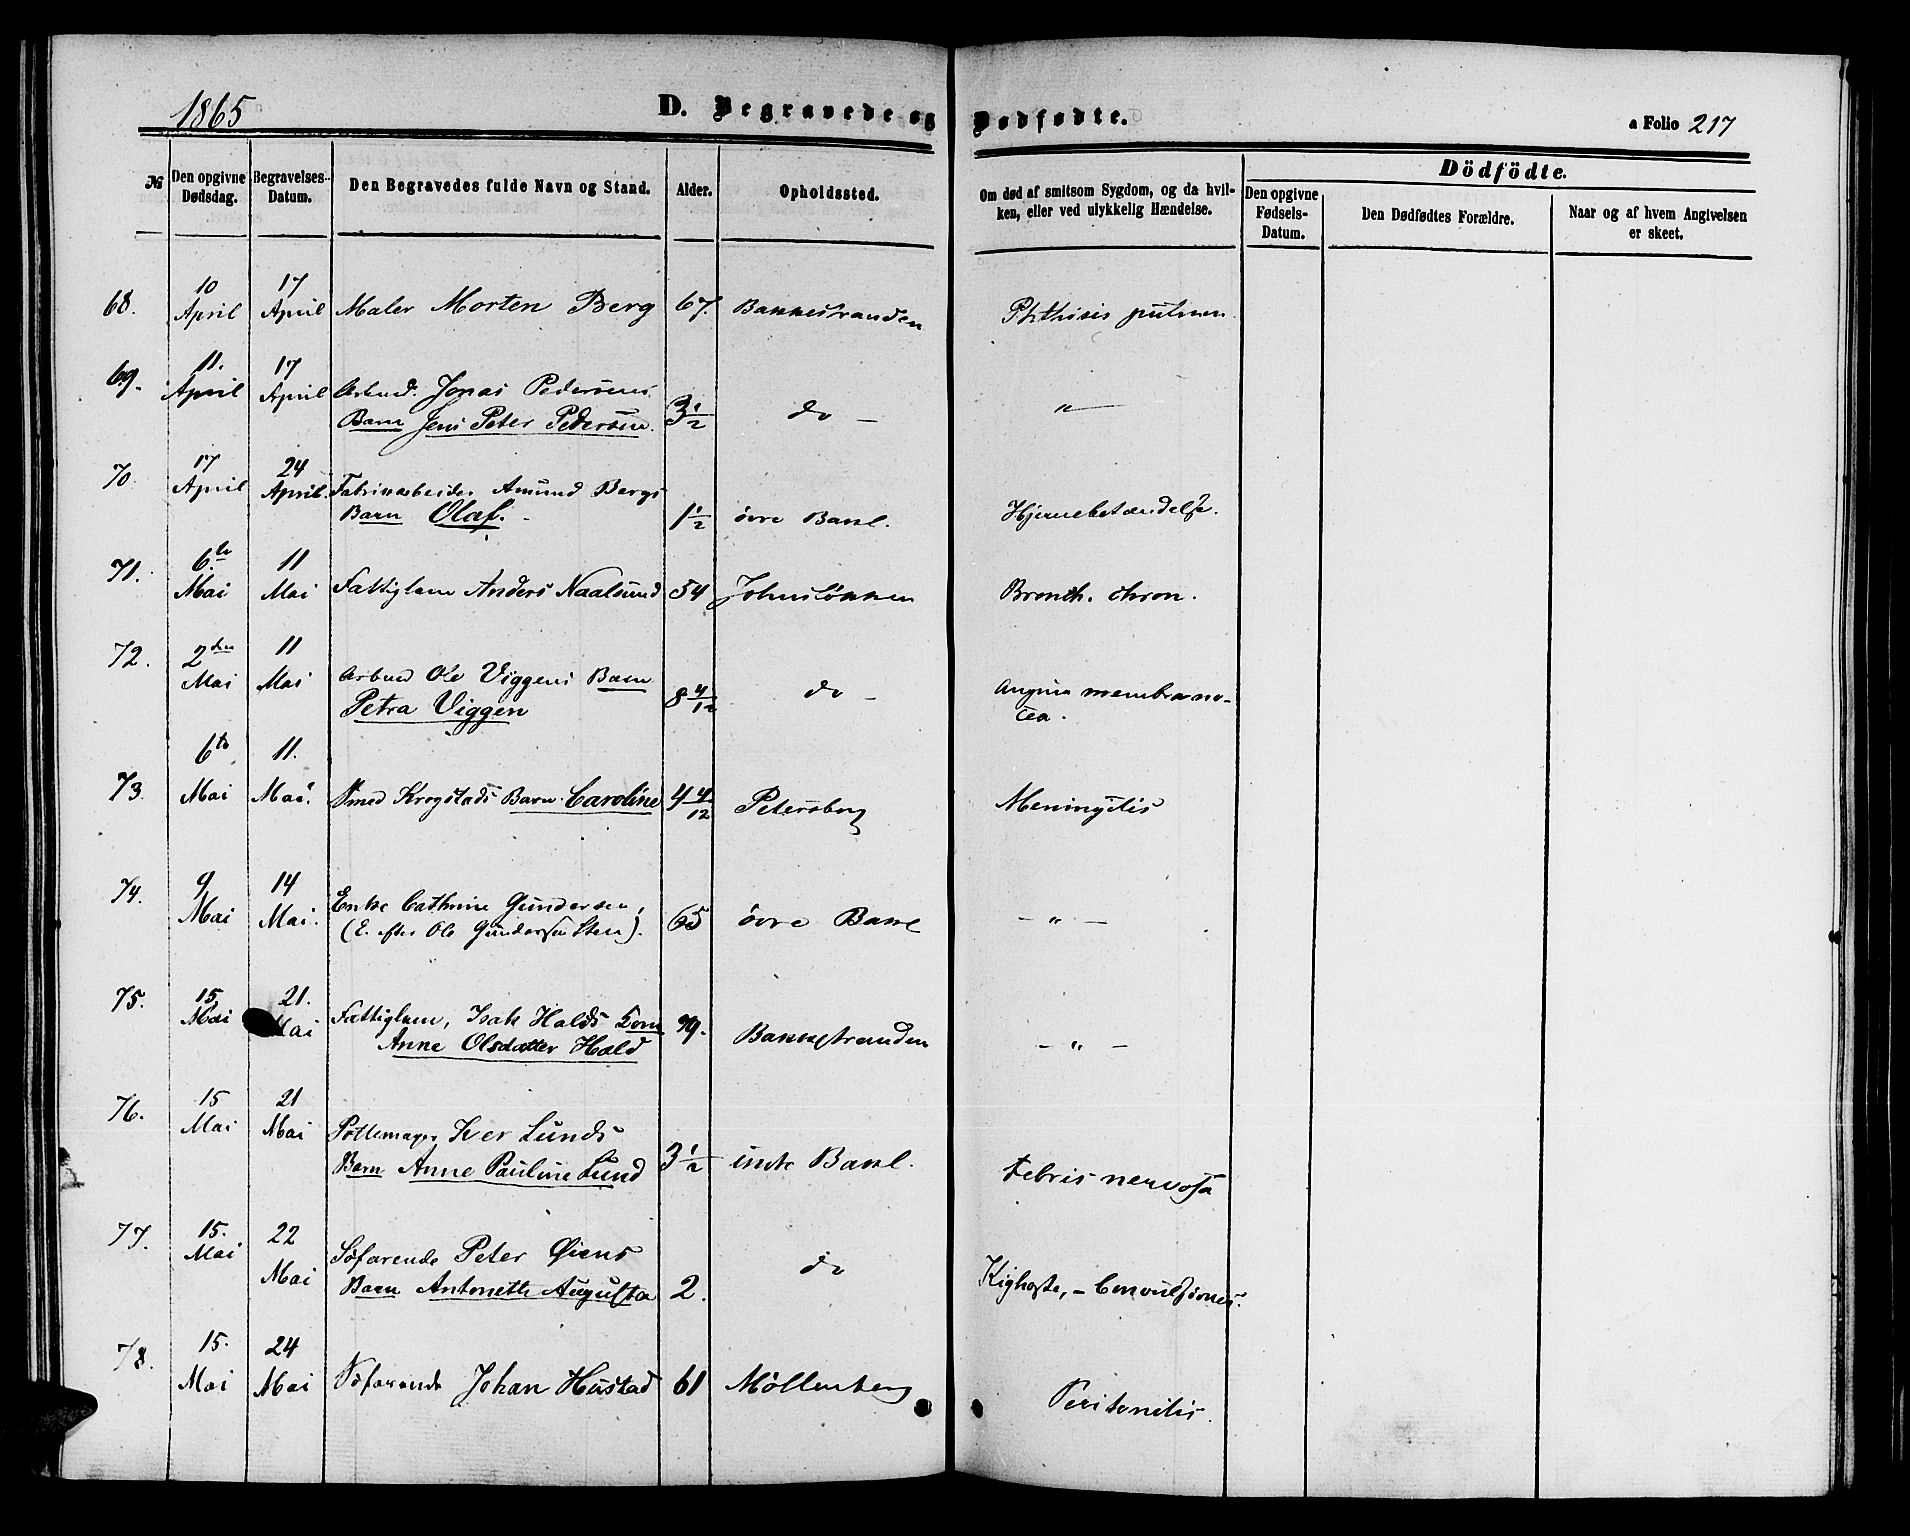 1865
D. Begravede og Dødfødte.
a Folio 217
№
Den opgivne Dødsdag.
Begravelses-Datum.
Den Begravedes fulde Navn og Stand.
Alder.
Opholdssted.
Om død af smitsom Sygdom, og da hvil-
ken, eller ved ulykkelig Hændelse.
Dödfödte.
Den opgivne Fødsels-Datum.
Den Dødfødtes Forældre.
Naar og af hvem Angivelsen er skeet.
68. 10 April 17 April Maler Morten Berg 67. Bakkestranden Phthisis pulmon
69. 11. April 17 April Arbmd. Jonas Pedersens
Barn Jens Peter Pedersen. 3 1/2 do — " —
70 17 April 24 April. Fabrikarbeider Amund Bergs
Barn Olaf. 1 1/2 övre Bakl. Hjernebetændelse.
71. 6te Mai 11 Mai Fattiglem Anders Naalsund 54 Johnsløkken Bronch. chron.
72. 2den Mai 11 Mai Arbmd Ole Viggens Barn
Petra Viggen 8 4/12 do — Angina membrana-
cea.
73. 6te Mai 11. Mai. Smed Krogstads Barn Caroline 4 4/12 Petersborg Meningitis
74. 9 Mai 14 Mai. Enke Cathrine Gundersen,
(E. efter Ole Gundersen Sten). 65 övre Bakl — " —
75. 15 Mai 21. Mai Fattiglem, Isak Halds Kone
Anne Olsdatter Hald 79. Bakkestranden — " —
76. 15 Mai 21 Mai Pottemager Iver Lunds
Barn Anne Pauline Lund 3 1/2 indre Bakl. Febris nervosa
77. 15. Mai 22 Mai Söfarende Peter Øiens
Barn Antonette Augusta 2. do Kighoste, – Convulsiones.
78. 15. Mai 24 Mai Söfarende Johan Hustad 61 Møllenberg Peritonitis.